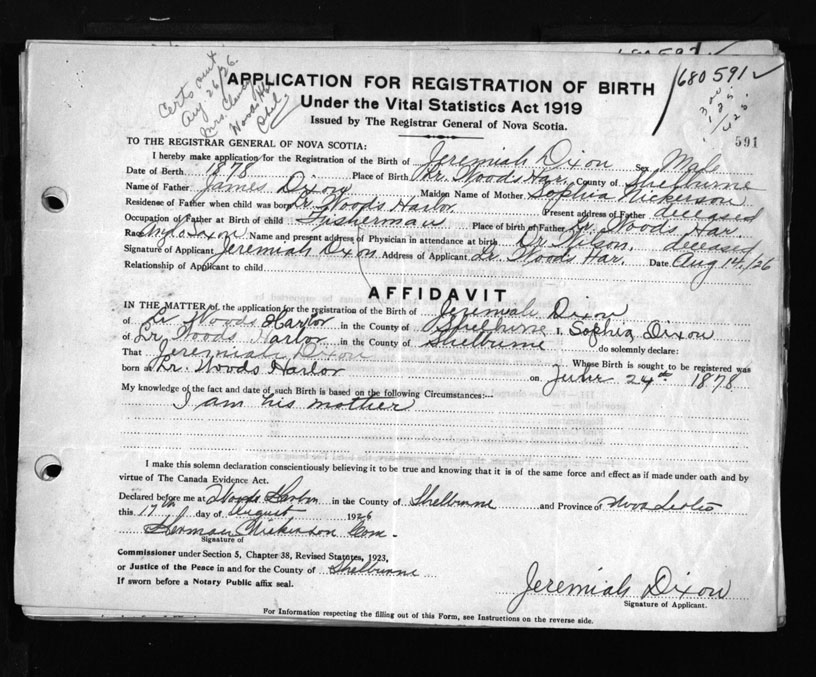 680591 ✓
Certs out
Aug 26/26.
Mrs.
Woods Har
Shel.
APPLICATION FOR REGISTRATION OF BIRTH
Under the Vital Statistics Act 1919
Issued by The Registrar General of Nova Scotia.
591
TO THE REGISTRAR GENERAL OF NOVA SCOTIA:
I hereby make application for the Registration of the Birth of Jeremiah Dixon Sex Male
Date of Birth 1878 Place of Birth Lr. Woods Har. County of Shelburne
Name of Father James Dixon Maiden Name of Mother Sophia Nickerson
Residence of Father when child was born Lr. Woods Harbor Present address of Father deceased
Occupation of Father at Birth of child Fisherman Place of birth of Father Lr. Woods Har.
Race Saxon Name and present address of Physician in attendance at birth Dr. Wilson. deceased
Signature of Applicant Jeremiah Dixon Address of Applicant Lr. Woods Har. Date Aug 14./26
Relationship of Applicant to child
AFFIDAVIT
IN THE MATTER of the application for the registration of the Birth of Jeremiah Dixon
of Lr Woods Harbor in the County of Shelburne I, Sophia Dixon
of Lr Woods Harbor in the County of Shelburne do solemnly declare:
That Jeremiah Dixon Whose Birth is sought to be registered was
born at Lr. Woods Harbor on 24th 1878
My knowledge of the fact and date of such Birth is based on the following Circumstances:--
I am his mother
I make this solemn declaration conscientiously believing it to be true and knowing that it is of the same force and effect as if made under oath and by
virtue of The Canada Evidence Act.
Declared before me at Woods Harbor in the County of Shelburne and Province of Nova Scotia
this 17th day of August 1926
Herman Nickerson Com.
Signature of
Commissioner under Section 5, Chapter 38, Revised Statutes, 1923,
or Justice of the Peace in and for the County of Shelburne
If sworn before a Notary Public affix seal.
Jeremiah Dixon
Signature of Applicant.
For Information respecting the filling out of this Form, see Instructions on the reverse side.